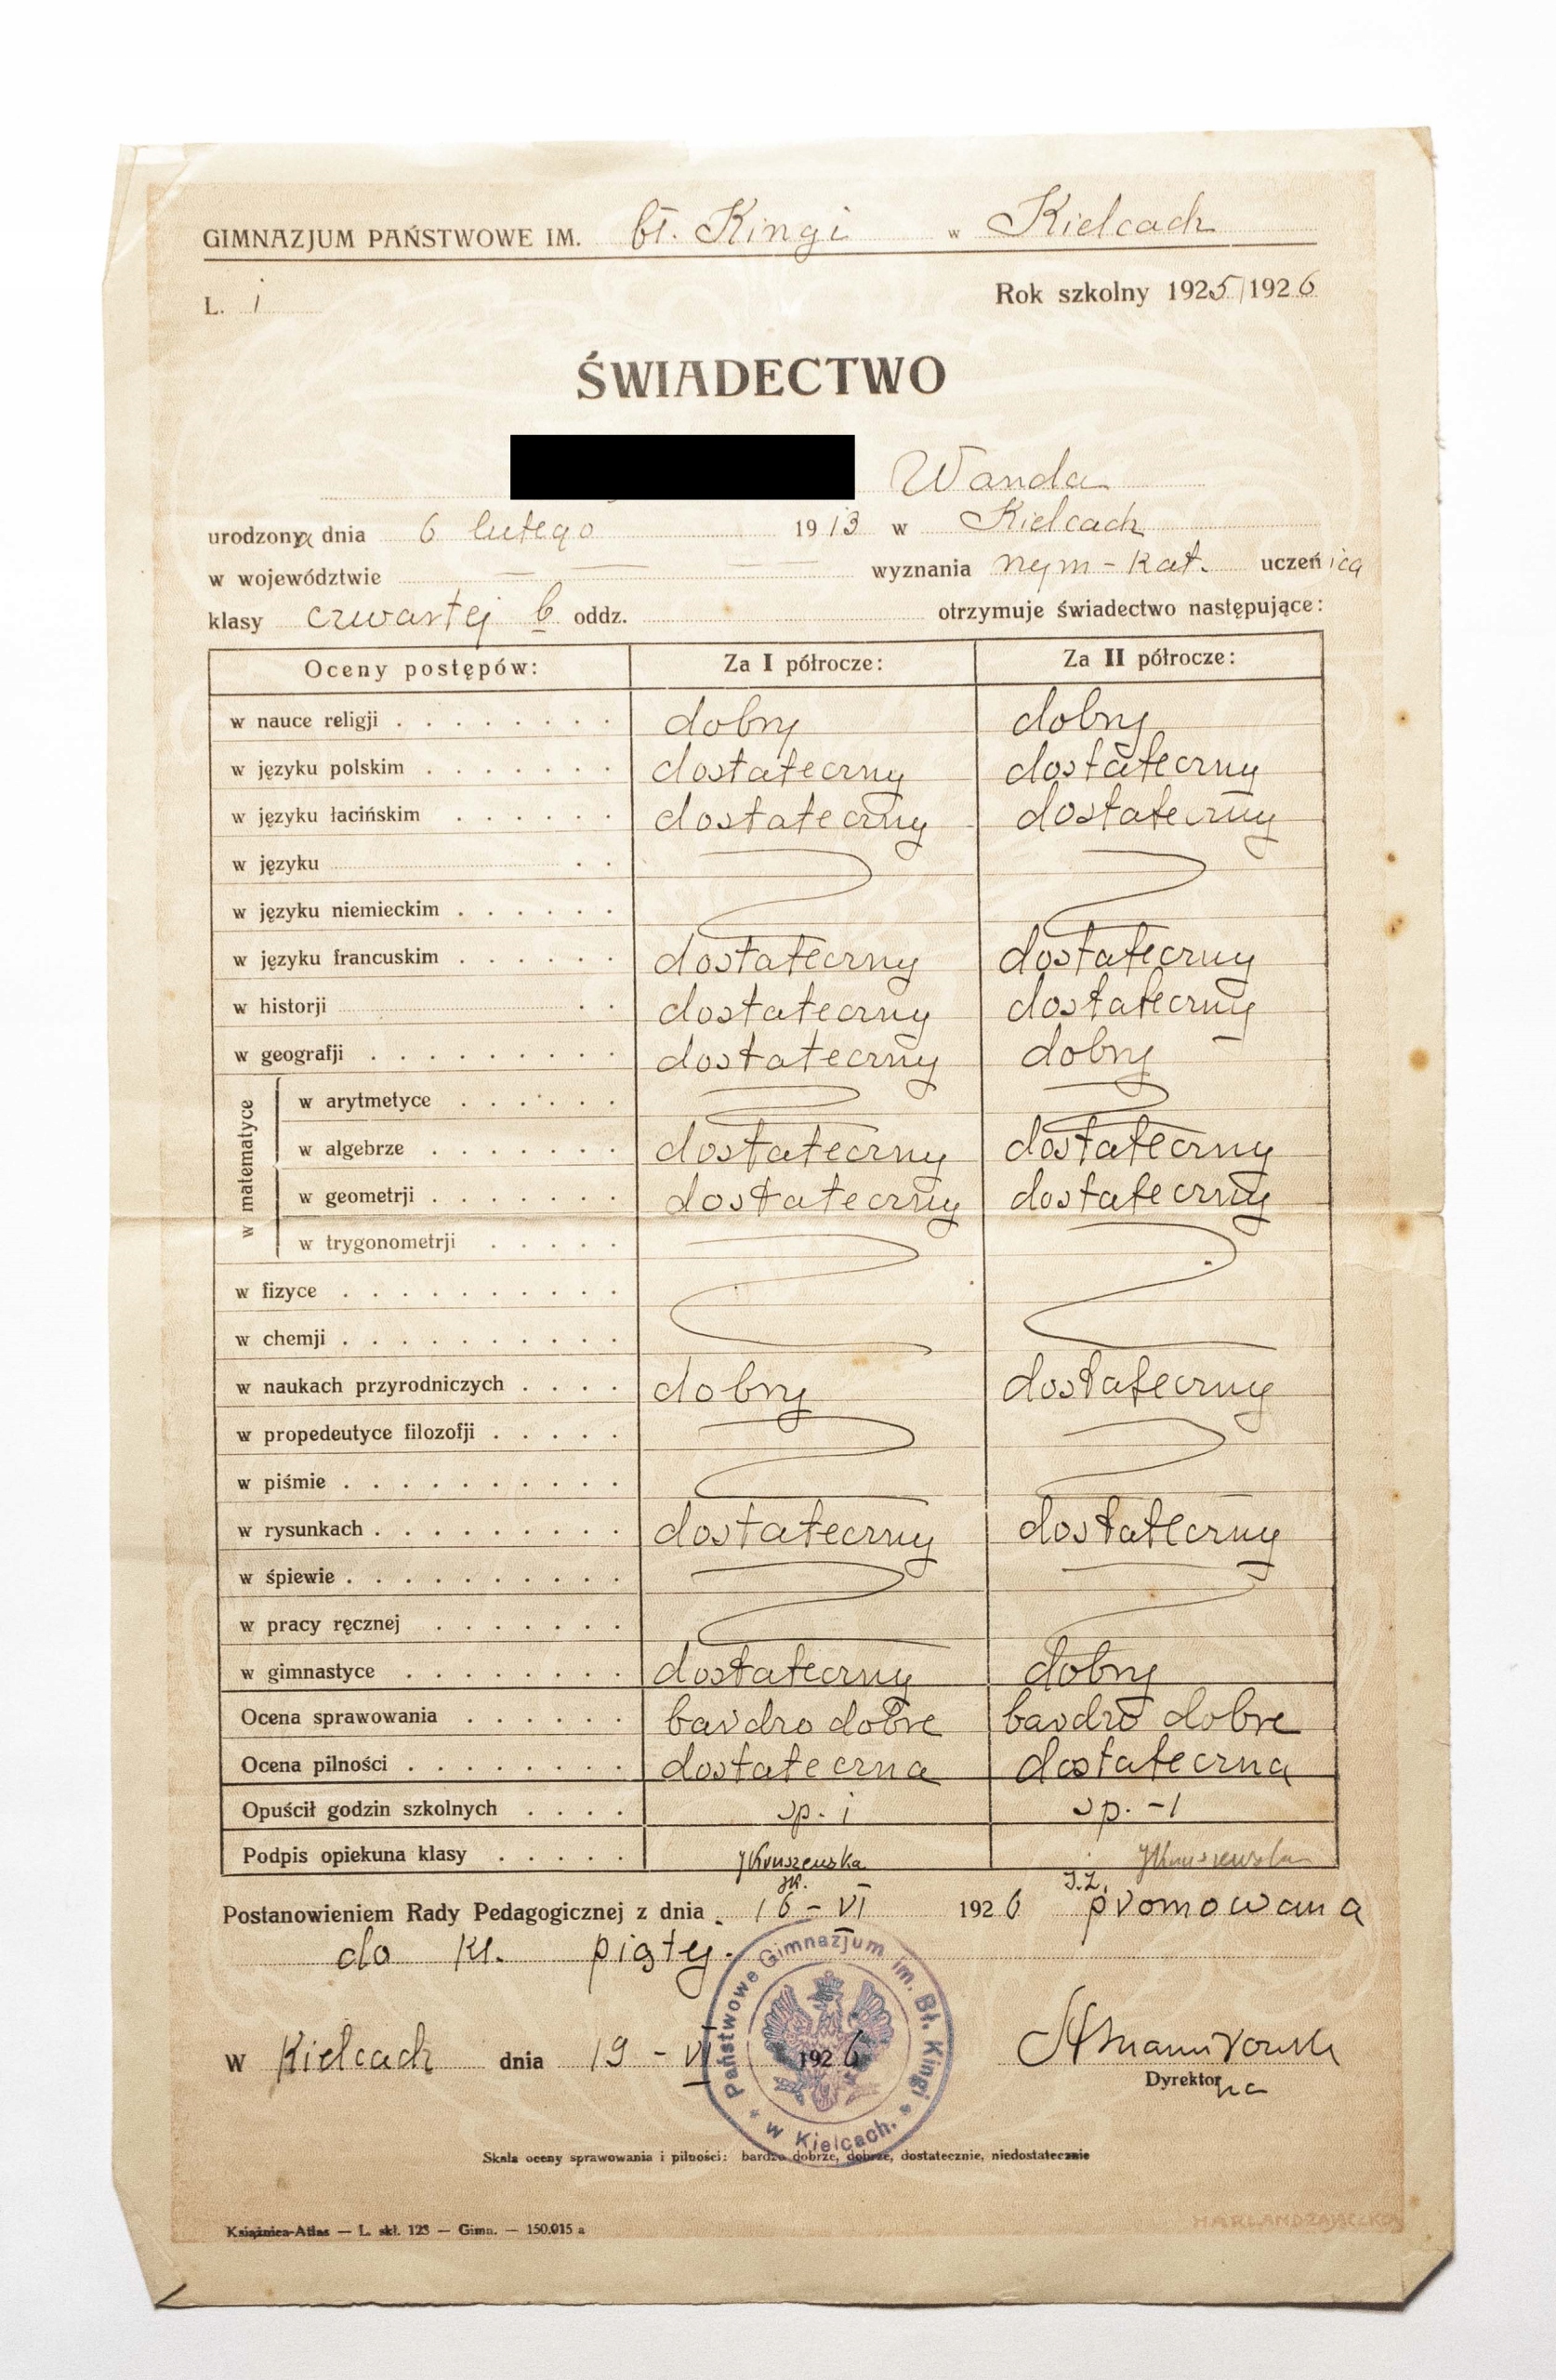 GIMNAZJUM PAŃSTWOWE IM. bł. Kingi w Kielcach
L. 1 Rok szkolny 1925/1926
ŚWIADECTWO
Wanda
urodzona dnia 6 lutego 1913 w Kielcach
w województwie — — wyznania rzym-kat. uczenica
klasy czwartej b oddz. otrzymuje świadectwo następujące:
Oceny postępów: Za I półrocze: Za II półrocze:
w nauce religji dobry dobry
w języku polskim dostateczny dostateczny
w języku łacińskim dostateczny dostateczny
w języku
w języku niemieckim
w języku francuskim dostateczny dostateczny
w historji dostateczny dostateczny
w geografji dostateczny dobry
w matematyce
w arytmetyce
w algebrze dostateczny dostateczny
w geometrji dostateczny dostateczny
w trygonometrji
w fizyce
w chemji
w naukach przyrodniczych dobry dostateczny
w propedeutyce filozofji
w piśmie
w rysunkach dostateczny dostateczny
w śpiewie
w pracy ręcznej
w gimnastyce dostateczny dobry
Ocena sprawowania bardzo dobre bardzo dobre
Ocena pilności dostateczna dostateczna
Opuścił godzin szkolnych sp. 1 sp. - 1
Podpis opiekuna klasy JKruszewska JKruszewska
Postanowieniem Rady Pedagogicznej z dnia 16 - VI 1926 promowana
do kl. piątej.
w Kielcach dnia 19 - VI 1926
Dyrektorka
Państwowe Gimnazjum im. Bł. Kingi * w Kielcach. *
Skala oceny sprawowania i pilności: bardzo dobrze, dobrze, dostatecznie, niedostatecznie
Książnica-Atlas — L. skł. 123 — Gimn. — 150.015 a